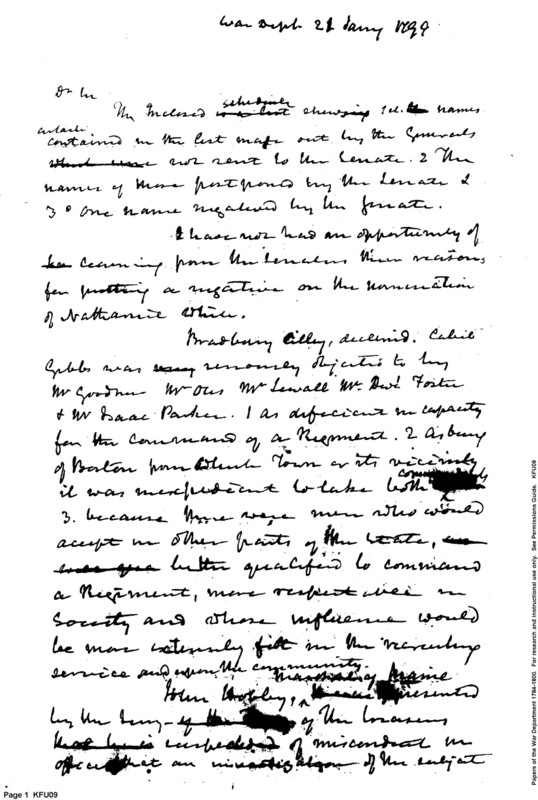 War Dept 21 Jany 1799
Dr Sir
The Inclosed schedule is a list shewing 1st. the names
contained in the list made out by the Generals
which were not sent to the Senate. 2 The
names of those postponed by the Senate &
3o one name negatived by the Senate.
I have not had an opportunity of
learning from the Senators their reasons,
for putting a negative on the nomination
of Nathaniel White.
Bradbury Cilley, declined. Caleb
Gibbs was seriously objected to by
Mr Goodhue Mr Otis Mr Sewall Mr Dwt. Foster
& Mr Isaac Parker. 1 as deficient in capacity
for the command of a Regiment. 2 as being
of Boston from which Town or its vicinity
it was inexpedient to take both
3. because there were men who would
accept in other parts of the State,
better qualified to command
a Regiment, more respectable in
Society and whose influence would
be more extensively felt in the recruiting
service and upon the community.
John Hobby, Marshal of Maine presented
by the Secy of the Treasury
that he is suspected of misconduct in
office that an investigation of the subject
Page 1 KFU09
Papers of the War Department 1784-1800. For research and instructional use only. See Permissions Guide. KFU09